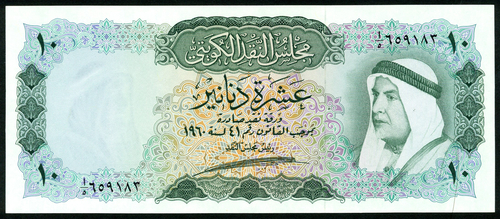 مجلس النقد الكويتي
١٠
١٠
١/٥ ٦٥٩١٨٣
عشرة دنانير
ورقة نقد صادرة
بموجب القانون رقم ٤١ لسنة ١٩٦٠
رئيس مجلس النقد
١/٥ ٦٥٩١٨٣
١٠
١٠